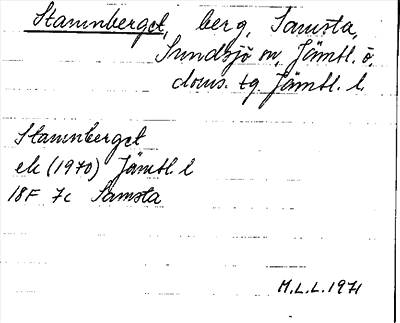 Stamnberget, berg, Samsta,
Sundsjö sn, Jämtl. ö.
doms. tg. Jämtl. l.
Stamnberget
ek (1970) Jämtl. l
18F 7c Samsta
M.L.L. 1971